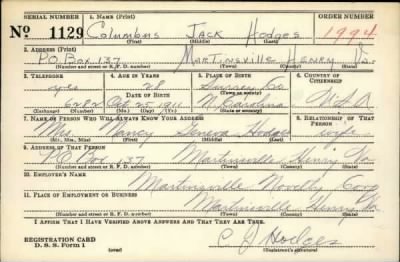 SERIAL NUMBER 1. NAME (Print) ORDER NUMBER
No 1129 Columbus Jack Hodges 1994
(First) (Middle) (Last)
2. ADDRESS (Print)
P.O Box 137 Martinsville Henry Va.
(Number and street or R. F. D. number) (Town) (County) (State)
3. TELEPHONE 4. AGE IN YEARS 5. PLACE OF BIRTH 6. COUNTRY OF CITIZENSHIP
yes Surrey Co
(Town or county)
DATE OF BIRTH
6282 Oct 25 1911 N. Carolina U.S.A
(Exchange) (Number) (Mo.) (Day) (Yr.) (State or country)
7. NAME OF PERSON WHO WILL ALWAYS KNOW YOUR ADDRESS 8. RELATIONSHIP OF THAT PERSON
Mrs. Nancy Geneva Hodges wife
(Mr., Mrs., Miss) (First) (Middle) (Last)
9. ADDRESS OF THAT PERSON
P.O Box 137 Martinsville Henry Va
(Number and street or R. F. D. number) (Town) (County) (State)
10. EMPLOYER'S NAME
Martinsville Novelty Corp
11. PLACE OF EMPLOYMENT OR BUSINESS
Martinsville Henry Va.
(Number and street or R. F. D. number) (Town) (County) (State)
I AFFIRM THAT I HAVE VERIFIED ABOVE ANSWERS AND THAT THEY ARE TRUE.
REGISTRATION CARD
D. S. S. Form 1 (over) C J Hodges
(Registrant's signature)